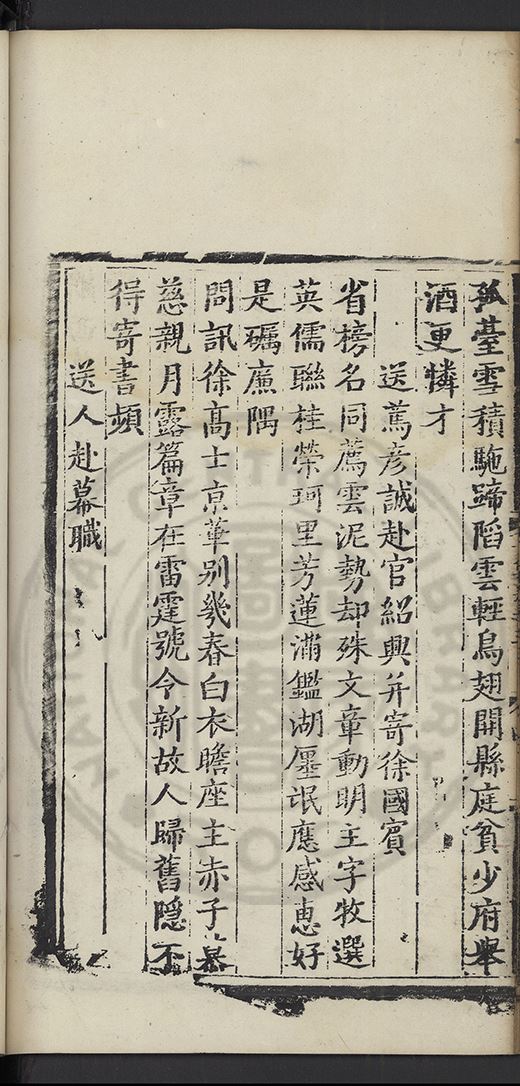 孤臺雪積駞蹄陷雲輕鳥翅開縣庭貧少府舉
酒更憐才
送薦彦誠赴官紹興并寄徐國賓
省榜名同薦雲泥勢却殊文章動明主字牧選
英儒聯桂榮珂里芳蓮滿鑑湖㕓氓應感恵好
是礪廉隅
問訊徐髙士京華别㡬春白衣瞻座主赤子慕
慈親月露篇章在雷霆號令新故人歸舊隠不
得寄書頻
送人赴幕職